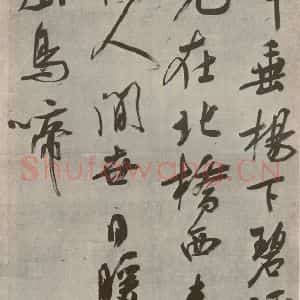 垂楊下碧
在北橋西
人間世日暖
鳥啼
Shufawang.CN